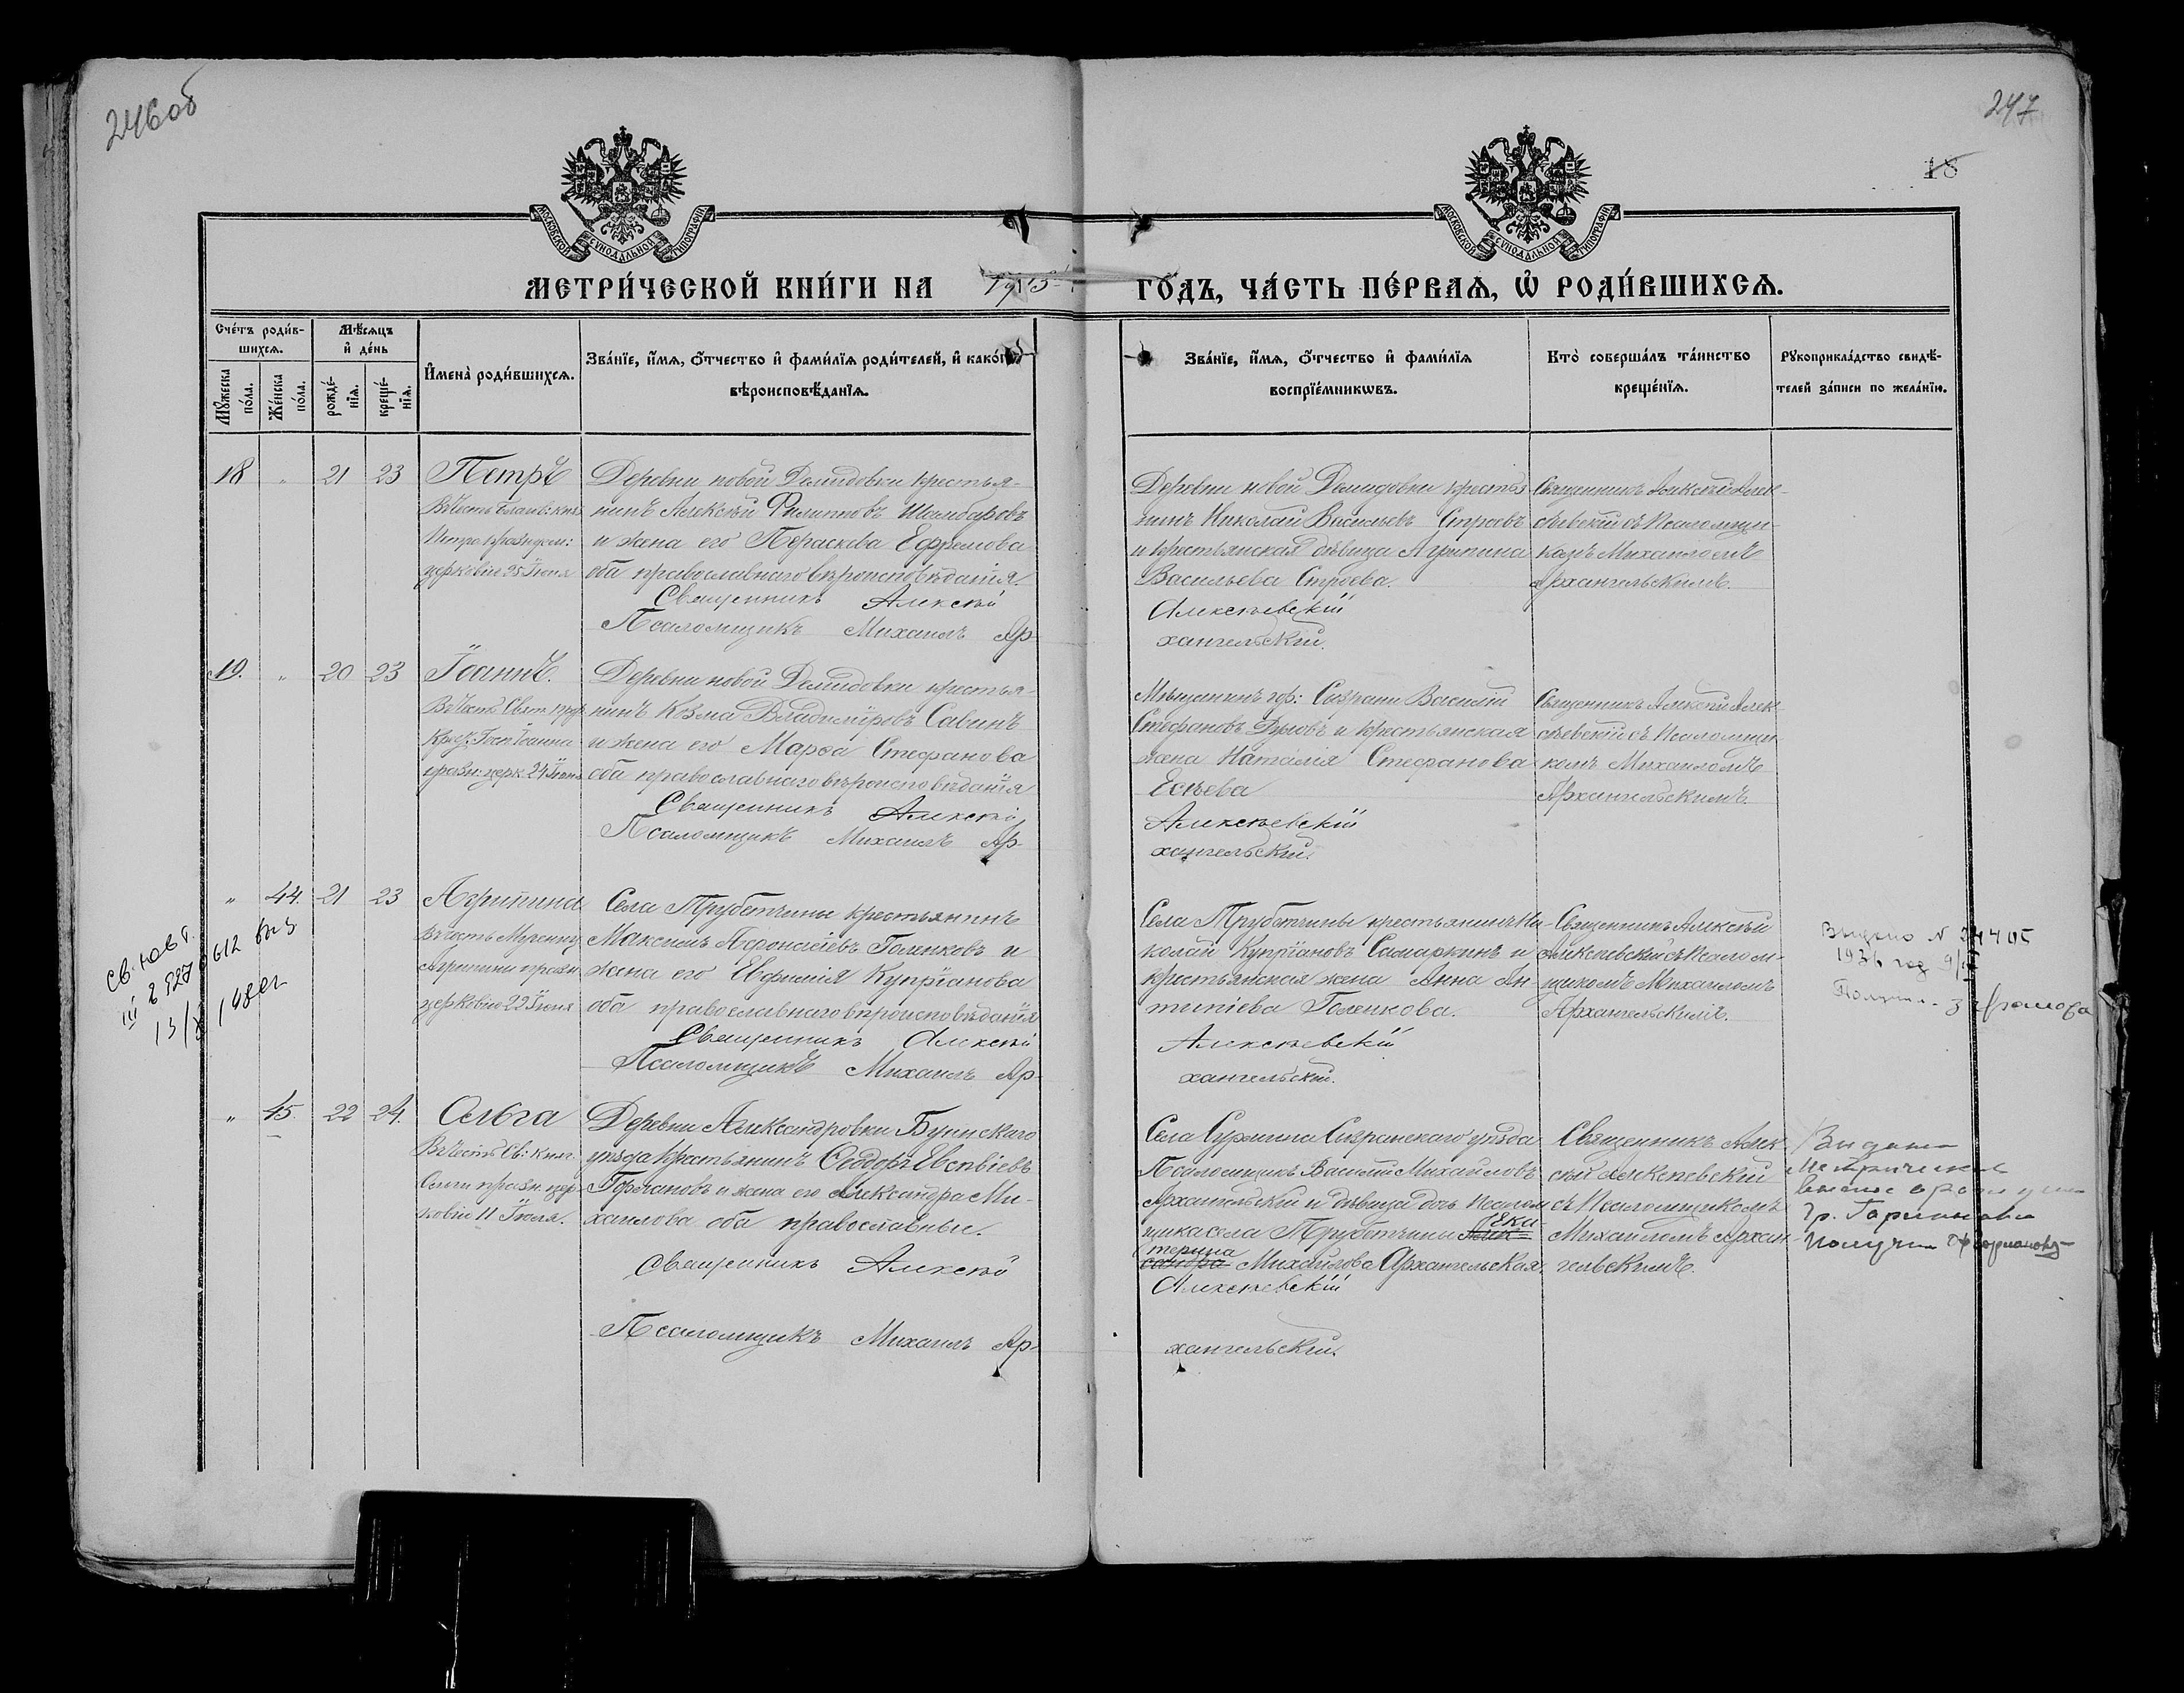 246об
247
18
МОСКОВСКОЙ СѴНОДАЛЬНОЙ ТИПОГРАФІИ
МОСКОВСКОЙ СѴНОДАЛЬНОЙ ТИПОГРАФІИ
МЕТРИ́ЧЕСКОЙ КНИ́ГИ НА 1913 ГО́ДЪ, ЧА́СТЬ ПЕ́РВАѦ, Ѡ҆ РОДИ́ВШИХСѦ.
Сче́тъ роди́в-
шихсѧ.
Мꙋ́жеска по́ла.
Же́нска по́ла.
Мѣ́сѧцъ
и҆ де́нь
рожде́-
нїѧ.
креще́-
нїѧ.
И҆мена̀ роди́вшихсѧ.
Зва́нїе, и҆́мѧ, ѻ҆́тчество и҆ фами́лїѧ роди́телей, и҆ како́гѡ
вѣроисповѣ́данїѧ.
Зва́нїе, и҆́мѧ, ѻ҆́тчество и҆ фами́лїѧ
воспрїе́мникѡвъ.
Кто̀ соверша́лъ та́инство
креще́нїѧ.
Рꙋкоприкла́дство свидѣ́-
телей за́писи по жела́нїю.
18 " 21 23 Петръ
Въ честь благов: кн:
Петра праздуем:
церковію 25 Іюня
Деревни новой Демидовки крестья-
нинъ Алексѣй Филипповъ Шамбаровъ
и жена его Пераскева Ефремова
оба православнаго вѣроисповѣданія.
Священникъ Алексѣй
Псаломщикъ Михаилъ Ар-
Деревни новой Демидовки крестья-
нинъ Николай Васильевъ Строевъ
и крестьянская дѣвица Агрипина
Васильева Строева.
Алексѣевскій
хангельскій.
Священникъ Алексѣй Алек-
сѣевскій съ Псаломщи-
комъ Михаиломъ
Архангельскимъ.
19. " 20 23 Іоаннъ.
Въ честь Свят. прор.
Крест. Госп Іоанна
празн: церк. 24 Іюня
Деревни новой Демидовки крестья-
нинъ Козма Владиміровъ Савинъ
и жена его Марѳа Стефанова
оба православнаго вѣроисповѣданія
Священникъ Алексѣй
Псаломщикъ Михаилъ Ар-
Мѣщанинъ гор: Сызрани Василій
Стефановъ и крестьянская
жена Наталія Стефанова
Есѣева
Алексѣевскій
хангельскій.
Священникъ Алексѣй Алек-
сѣевскій съ Псаломщи-
комъ Михаиломъ
Архангельскимъ.
" 44. 21 23 Агрипина
Въ честь Мучениц.
Агрипины празн.
церковію 23 Іюня
Села Трубетчины крестьянинъ
Максимъ Афонасіевъ Голенковъ и
жена его Евфимія Купріанова
оба православнаго вѣроисповѣданія
Священникъ Алексѣй
Псаломщикъ Михаилъ Ар-
Села Трубетчины крестьянинъ Ни-
колай Купріановъ Самаркинъ и
крестьянская жена Анна Ан-
типіева Голенкова.
Алексѣевскій
хангельскій.
Священникъ Алексѣй
Алексѣевскій съ Псалом-
щикомъ Михаиломъ
Архангельскимъ.
Выдано №
1936 год
" 45. 22 24. Ольга
Въ честь Св: Княг.
Ольги празн. цер-
ковію 11 Іюля.
Деревни Александровки Буинскаго
уѣзда Крестьянинъ Ѳеодоръ Евсевіевъ
Горлановъ и жена его Александра Ми-
хаилова оба православные.
Священникъ Алексѣй
Псаломщикъ Михаилъ Ар-
Села Сызранскаго уѣзда
Псаломщикъ Василій Михайловъ
Архангельскій и дѣвица дочь псалом
щика села Трубетчины Ека
терина Михайлова Архангельская.
Алексѣевскій
хангельскій.
Священникъ Алек-
сѣй Алексѣевскій
съ Псаломщикомъ
Михаиломъ Архан-
гельскимъ.
Выдана
Метрическая